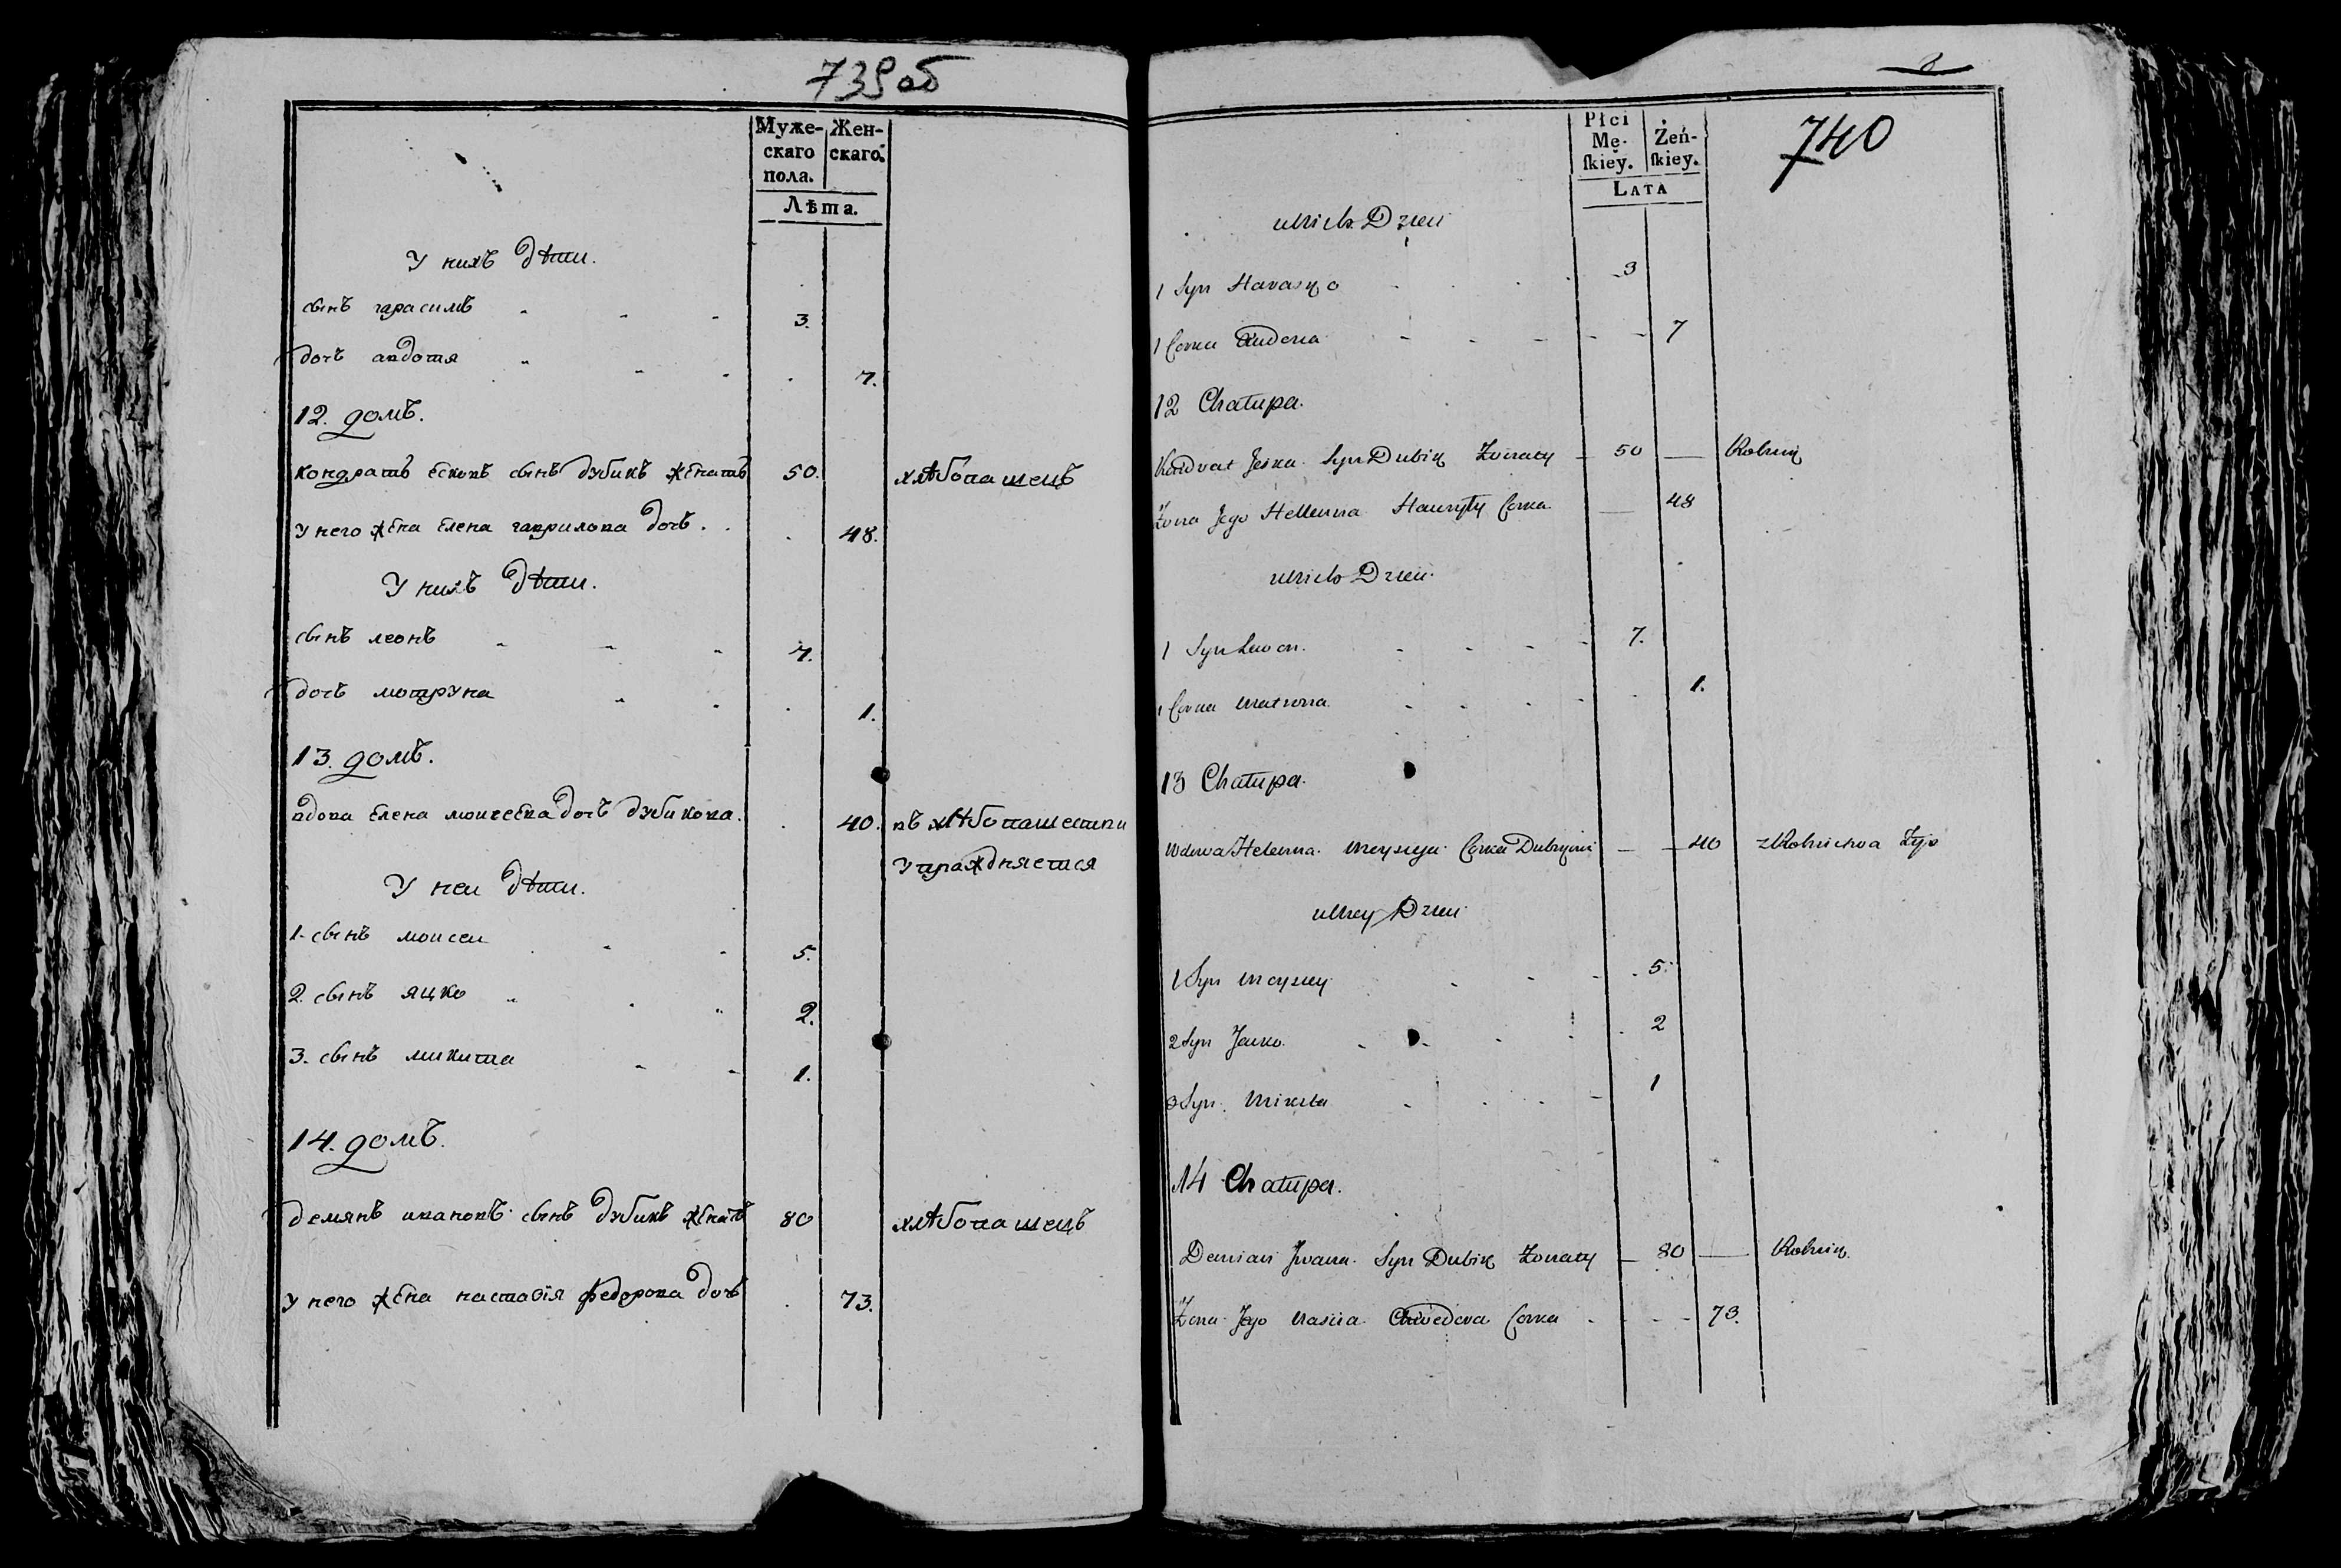 739 об
Муже-
скаго
пола.
Жен-
скаго.
Лѣта.
У нихъ дѣти.
сынъ гарасимъ 3.
дочъ авдотя 7.
12. домъ.
кондратъ есковъ сынъ дубикъ женатъ 50. хлѣбопашецъ
У него жена елена гаврилова дочъ. 48.
У нихъ дѣти.
сынъ леонъ 7.
дочъ мотруна 1.
13. домъ.
вдова елена моисеева дочъ дубикова. 40. въ хлѣбопашестви
упраждняется
У неи дѣти.
1. сынъ моисеи 5.
2. сынъ яцко 2.
3. сынъ микита 1.
14. домъ.
демянъ ивановъ сынъ дубикъ женатъ 80 хлѣбопашецъ
У него жена настасія федорова дочъ 73.
740
Płci
Mę-
ſkiey.
Żeń-
ſkiey.
LATA
u Nich Dzieci
1 Syn Harasym 3
1 Corka Audocia 7
12 Chałupa.
Kondrat Jeska Syn Dubik Żonaty 50 Rolnik
Żona Jego Hellenna Hauryły Corka 48
u Nich Dzieci
1 Syn Lewon. 7.
1 Corka Matrona 1.
13 Chałupa.
Wdowa Helenna Moysieja Corka 40 z Rolnictwa Żyje
u Niey Dzieci
1 Syn Moysiey 5.
2 Syn Jacko. 2
3 Syn Mikita 1
14 Chałupa.
Demian Jwana Syn Dubik Żonaty 80 Rolnik.
Żona Jego Nascia Chwedora Corka 73.